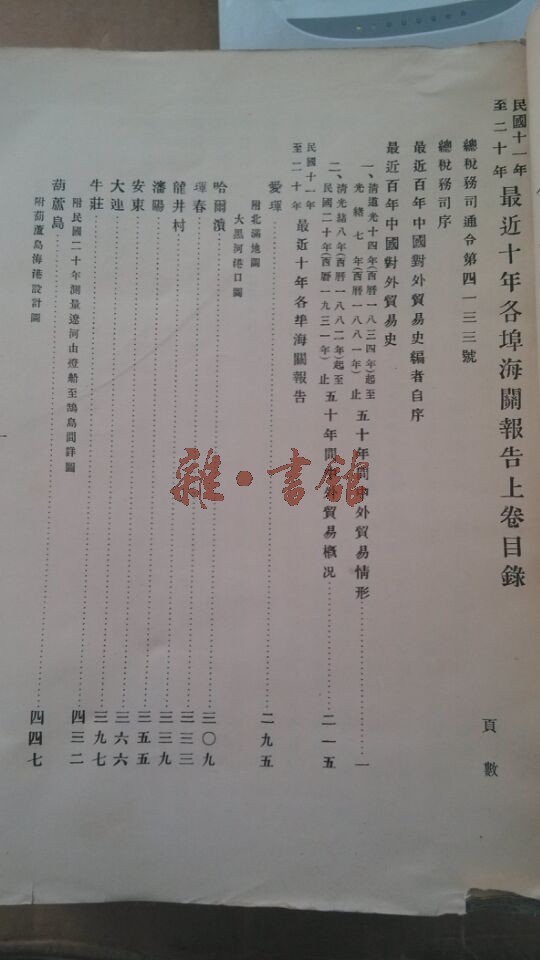 民國十一年至二十年 最近十年各埠海關報告上卷目錄
頁數
總稅務司通令第四一三三號
總稅務司序
最近百年中國對外貿易史編者自序
最近百年中國對外貿易史
一、清道光十四年(西曆一八三四年)起至光緒七年(西曆一八八一年)止 五十年間中外貿易情形 一
二、清光緒八年(西曆一八八二年)起至民國二十年(西曆一九三一年)止 五十年間中外貿易概況 二一五
民國十一年至二十年 最近十年各埠海關報告
愛琿 二九五
附北滿地圖
大黑河港口圖
哈爾濱 三〇九
琿春 三三三
龍井村 三三九
瀋陽 三五五
安東 三六六
大連 三九七
牛莊 四三二
附民國二十年測量遼河由燈船至鷂島間詳圖
葫蘆島 四四七
附葫蘆島海港設計圖
雜·書館